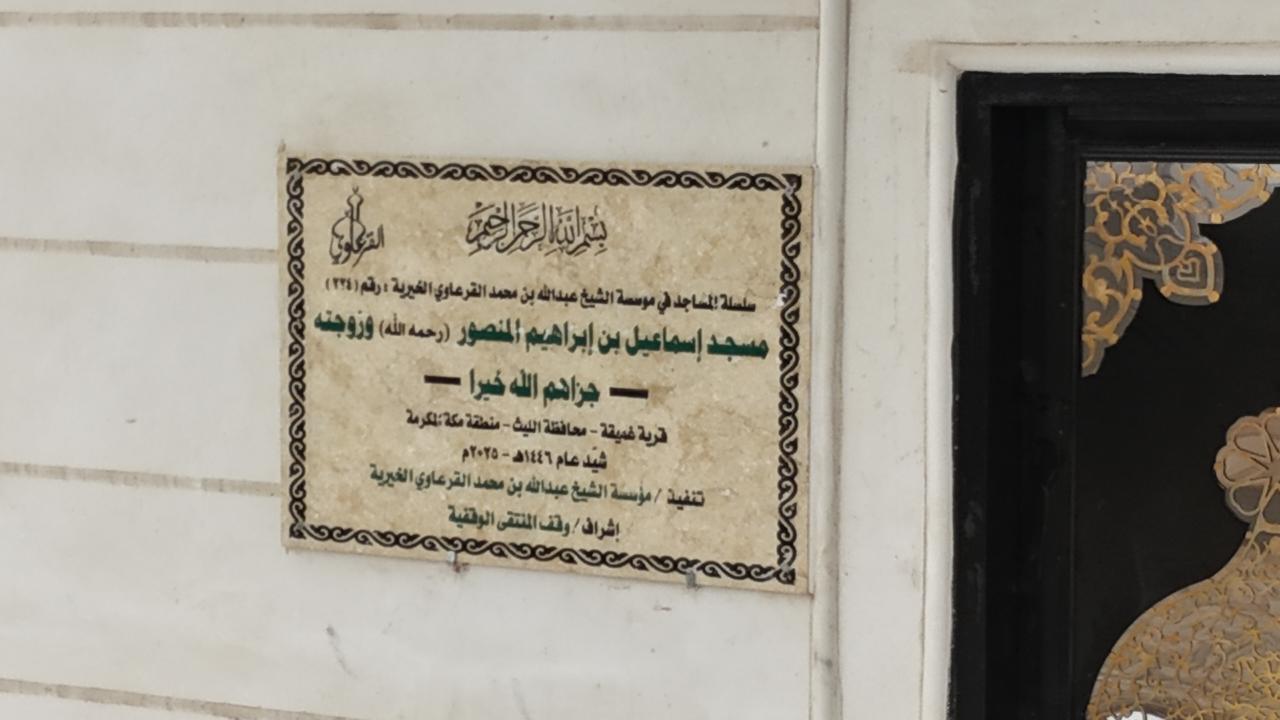 القرعاوي
بسم الله الرحمن الرحيم
سلسلة المساجد في موسسة الشيخ عبدالله بن محمد القرعاوي الخيرية ، رقم (٢٢٤)
مسجد إسماعيل بن إبراهيم المنصور (رحمه الله) وزوجته
جزاهم الله خيرا
قرية غميقة - محافظة الليث - منطقة مكة المكرمة
شيد عام ١٤٤٦هـ - ٢٠٢٥م
تنفيذ / مؤسسة الشيخ عبدالله بن محمد القرعاوي الخيرية
إشراف / وقف المنتقى الوقفية